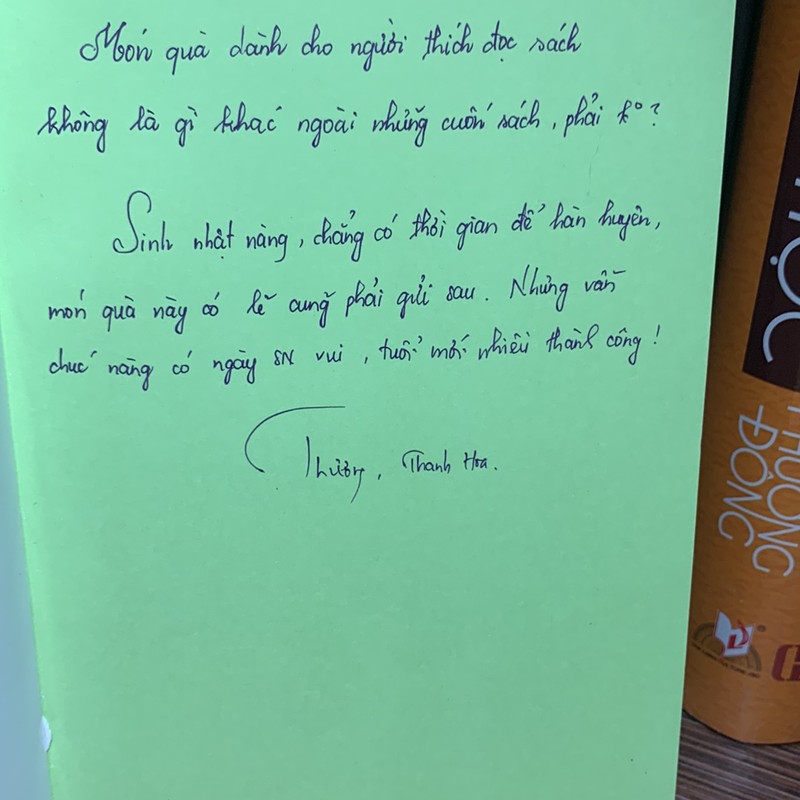 Món quà dành cho người thích đọc sách
không là gì khác ngoài những cuốn sách, phải k°?
Sinh nhật nàng, chẳng có thời gian để hàn huyên,
món quà này có lẽ cũng phải gửi sau. Nhưng vẫn
chúc nàng có ngày SN vui, tuổi mới nhiều thành công!
Thương, Thanh Hoa.
ỘC
PHƯƠNG
ĐÔNG